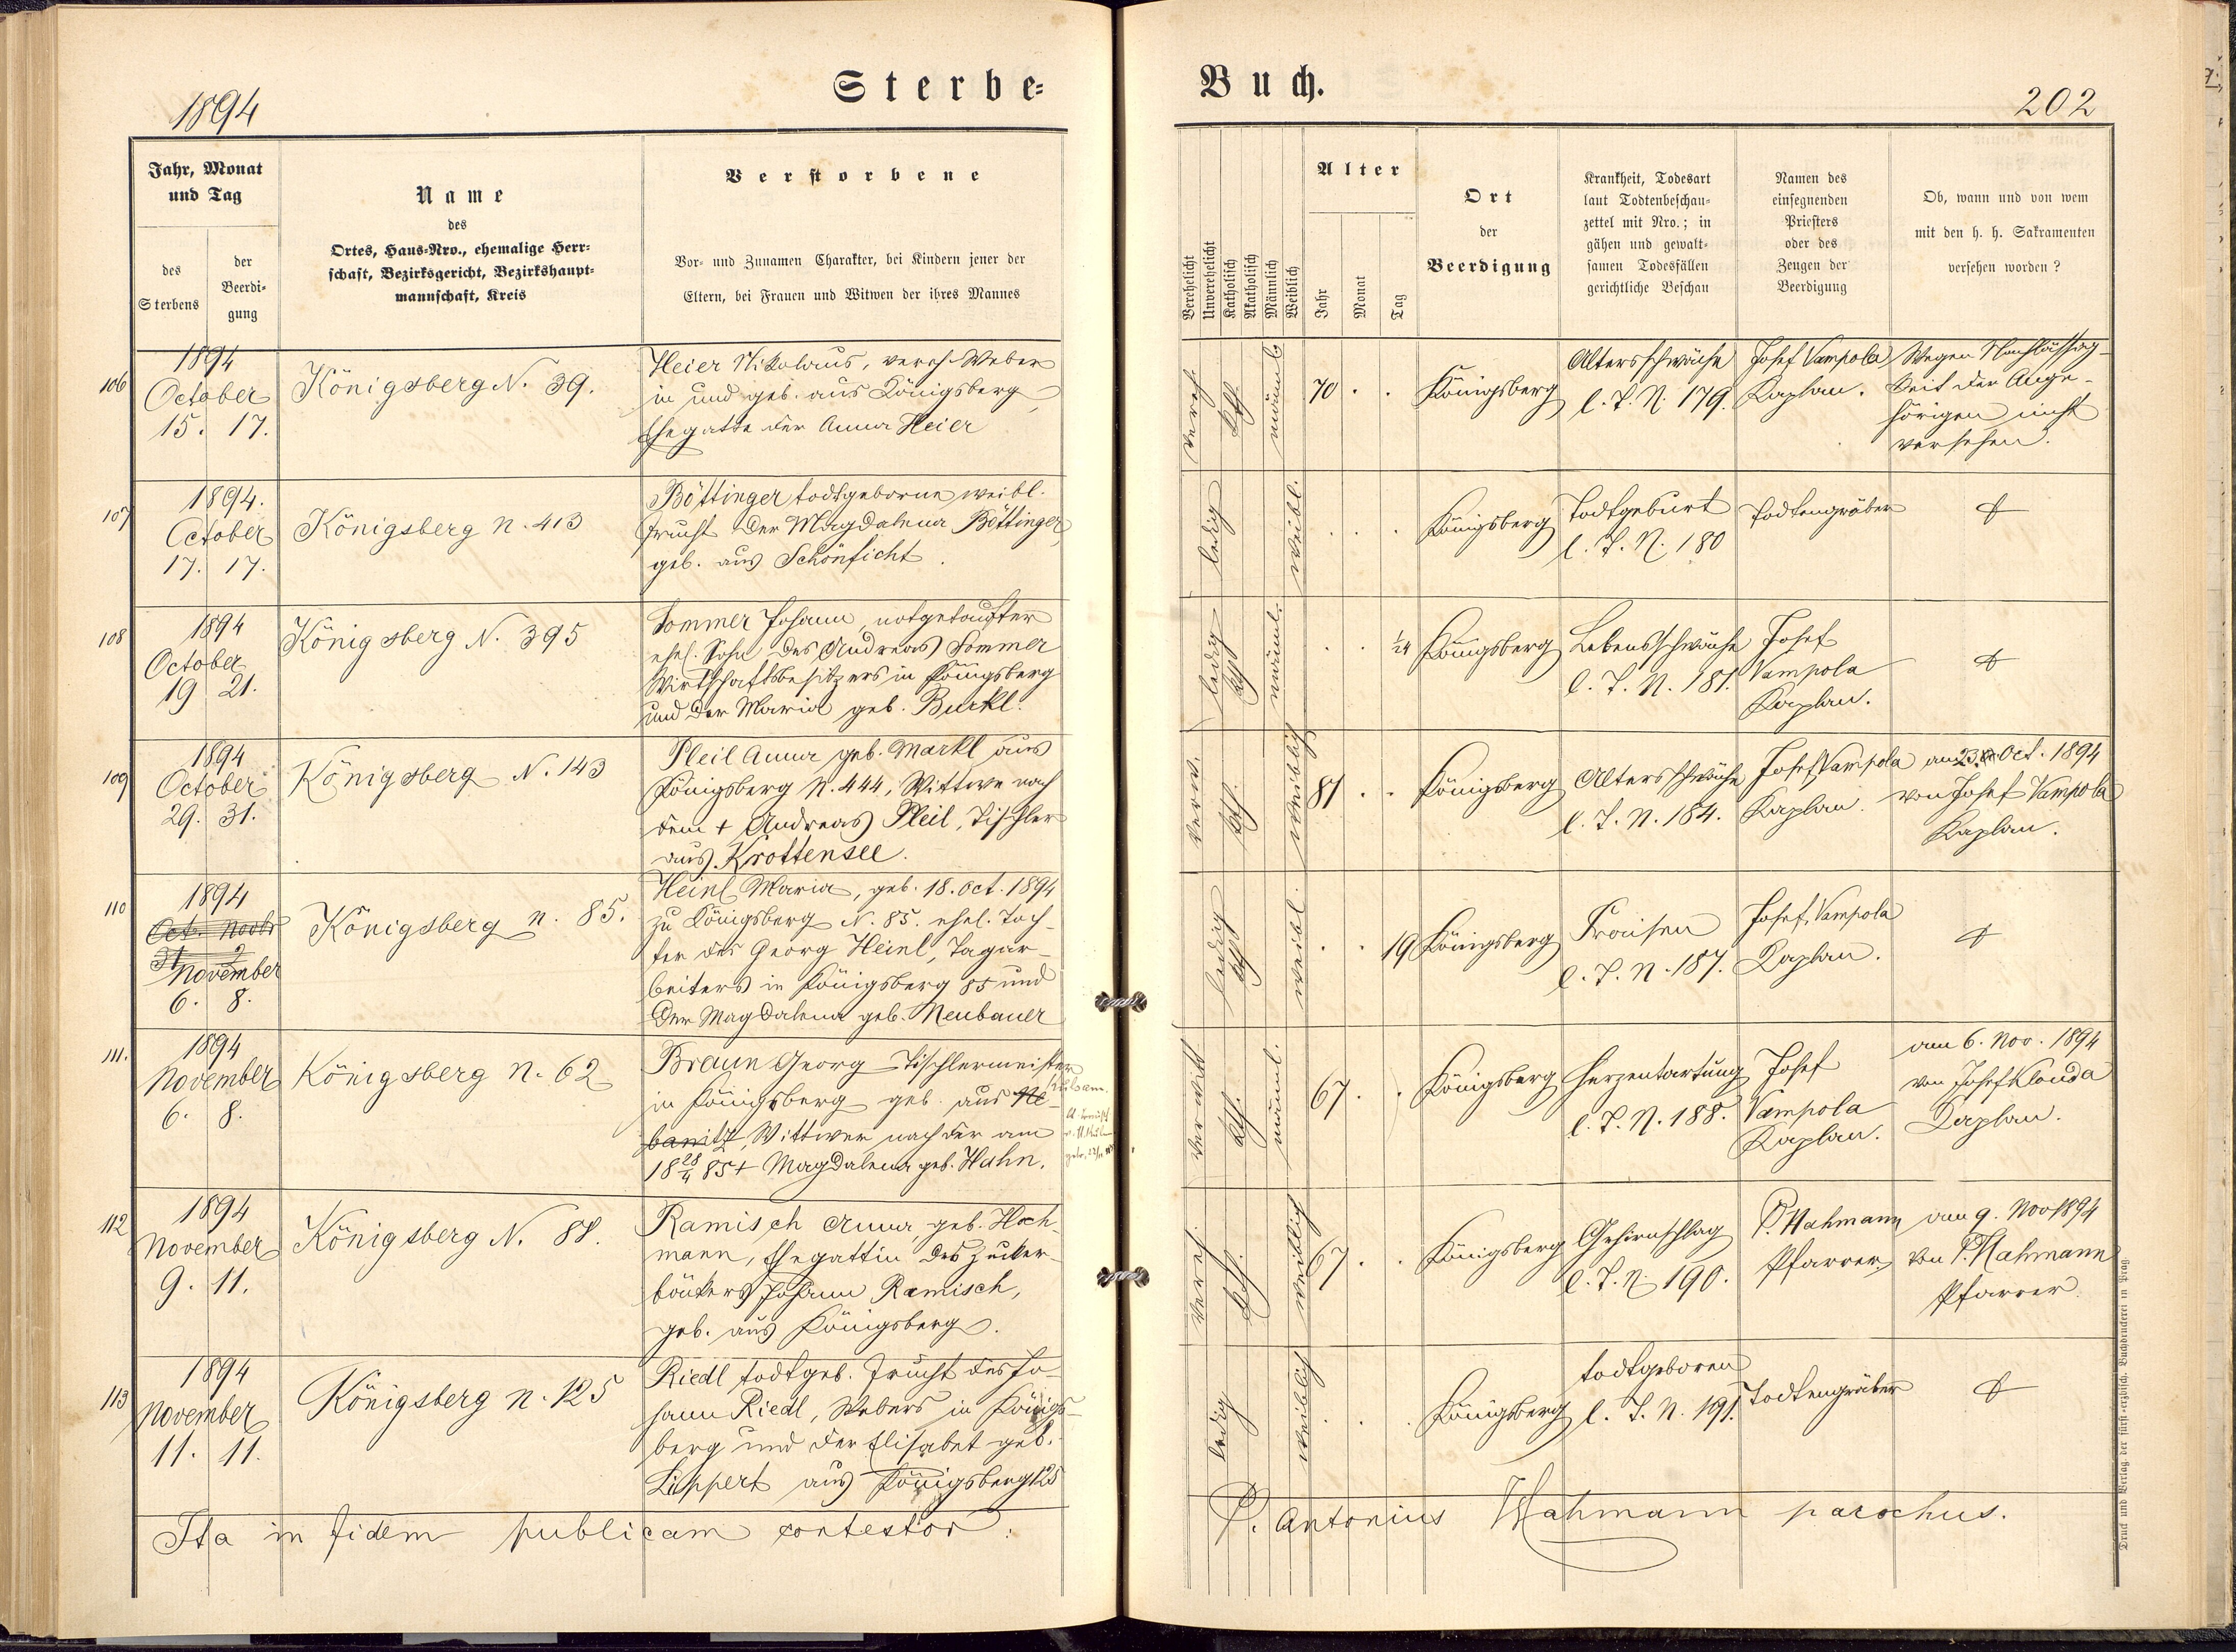 1894
Sterbe=
Buch.
202
Jahr, Monat
und Tag
des
Sterbens
der
Beerdi=
gung
Name
des
Ortes, Haus=Nro., ehemalige Herr=
schaft, Bezirksgericht, Bezirkshaupt=
mannschaft, Kreis
Verstorbene
Vor= und Zunamen Charakter, bei Kindern jener der
Eltern, bei Frauen und Witwen der ihres Mannes
Verehelicht
Unverehelicht
Katholisch
Akatholisch
Männlich
Weiblich
Alter
Jahr
Monat
Tag
Ort
der
Beerdigung
Krankheit, Todesart
laut Todtenbeschau=
zettel mit Nro.; in
gähen und gewalt=
samen Todesfällen
gerichtliche Beschau
Namen des
einsegnenden
Priesters
oder des
Zeugen der
Beerdigung
Ob, wann und von wem
mit den h. h. Sakramenten
versehen worden?
106
1894
October
15. 17.
Königsberg N. 39.
Heier Nikolaus, vereh. Weber
in und geb. aus Königsberg,
Ehegatte der Anna Heier
vereh.
kth.
männl.
70 . .
Königsberg
Altersschwäche
l. T. N. 179.
Josef Vampola
Kaplan.
Wegen Nachlässig-
keit der Ange-
hörigen nicht
versehen.
107
1894.
October
17. 17.
Königsberg N. 413
Böttinger todtgeborne weibl.
Frucht der Magdalena Böttinger,
geb. aus Schönficht.
ledig
weibl.
. . .
Königsberg
Todtgeburt
l. T. N. 180
Todtengräber
108
1894
October
19 21.
Königsberg N. 395
Sommer Johann, notgetaufter
ehel. Sohn des Andreas Sommer
Wirtschaftsbesitzers in Königsberg
und der Maria geb. Burkl.
ledig
kth
männl.
. . 1/24
Königsberg
Lebensschwäche
l. T. N. 181.
Josef
Vampola
Kaplan.
109
1894
October
29. 31.
Königsberg N. 143
Pleil Anna geb. Markl aus
Königsberg N. 444, Wittwe nach
dem + Andreas Pleil, Tischler
aus Krottensee.
verw.
kth.
weiblich
81 . .
Königsberg
Altersschwäche
l. T. N. 184.
Josef Vampola
Kaplan.
am 23. Oct. 1894
von Josef Vampola
Kaplan.
110
1894
Oct. Novbr
31 2
November
6. 8.
Königsberg N. 85.
Heinl Maria, geb. 18. Oct. 1894
zu Königsberg N. 85. ehel. Toch-
ter des Georg Heinl, Tagar-
beiters in Königsberg 85 und
der Magdalena geb. Neubauer
ledig
kth
weibl.
. . 19
Königsberg
Fraisen
l. T. N. 187.
Josef Vampola
Kaplan.
111.
1894
November
6. 8.
Königsberg N. 62
Braun Georg Tischlermeister
in Königsberg geb. aus Ne-
banitz, Wittwer nach der am
18 28/4 85 + Magdalena geb. Hahn.
verwitt.
kth.
männl.
67. .
Königsberg
Herzentartung
l. T. N. 188.
Josef
Vampola
Kaplan.
am 6. Nov. 1894
von Josef Klouda
Kaplan.
112
1894
November
9. 11.
Königsberg N. 88.
Ramisch Anna, geb. Hoch-
mann, Ehegattin des Zucker-
bäckers Johann Ramisch,
geb. aus Königsberg.
vereh.
kth.
weiblich
67. .
Königsberg
Gehirnschlag
l. T. N 190.
P. Hahmann
Pfarrer
am 9. Nov 1894
von P. Hahmann
Pfarrer.
113
1894
November
11. 11.
Königsberg N. 125
Riedl todtgeb. Frucht des Jo-
hann Riedl, Webers in Königs-
berg und der Elisabet geb.
Lippert aus Königsberg 125
ledig
weiblich
. . .
Königsberg
todtgeboren
l. T. N. 191.
Todtengräber
Ita in fidem publicam contestor.
P. Antonius Hahmann parochus.
Druck und Verlag der fürst=erzbisch. Buchdruckerei in Prag.